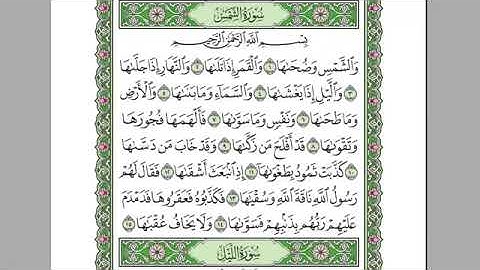 سُورَةُ الشَّمْسِ
بِسْمِ اللَّهِ الرَّحْمَٰنِ الرَّحِيمِ
وَالشَّمْسِ وَضُحَىٰهَا ١ وَالْقَمَرِ إِذَا تَلَىٰهَا ٢ وَالنَّهَارِ إِذَا جَلَّىٰهَا
٣ وَالَّيْلِ إِذَا يَغْشَىٰهَا ٤ وَالسَّمَاءِ وَمَا بَنَىٰهَا ٥ وَالْأَرْضِ
وَمَا طَحَىٰهَا ٦ وَنَفْسٍ وَمَا سَوَّىٰهَا ٧ فَأَلْهَمَهَا فُجُورَهَا
وَتَقْوَىٰهَا ٨ قَدْ أَفْلَحَ مَن زَكَّىٰهَا ٩ وَقَدْ خَابَ مَن دَسَّىٰهَا
١٠ كَذَّبَتْ ثَمُودُ بِطَغْوَىٰهَا ١١ إِذِ انۢبَعَثَ أَشْقَىٰهَا ١٢ فَقَالَ لَهُمْ
رَسُولُ اللَّهِ نَاقَةَ اللَّهِ وَسُقْيَٰهَا ١٣ فَكَذَّبُوهُ فَعَقَرُوهَا فَدَمْدَمَ
عَلَيْهِمْ رَبُّهُم بِذَنۢبِهِمْ فَسَوَّىٰهَا ١٤ وَلَا يَخَافُ عُقْبَٰهَا ١٥
سُورَةُ اللَّيْلِ